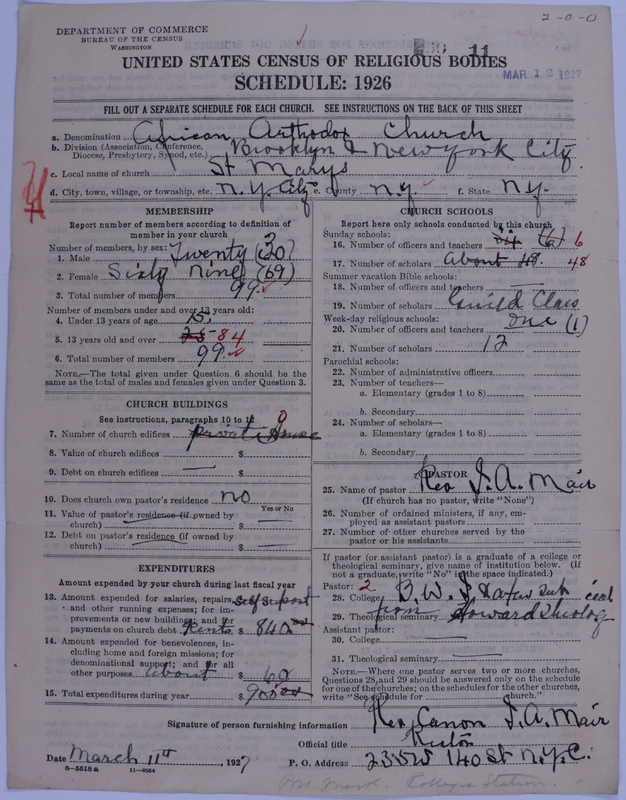 2-0-0
DEPARTMENT OF COMMERCE
BUREAU OF THE CENSUS
WASHINGTON
11
MAR 12 1927
UNITED STATES CENSUS OF RELIGIOUS BODIES
SCHEDULE: 1926
FILL OUT A SEPARATE SCHEDULE FOR EACH CHURCH. SEE INSTRUCTIONS ON THE BACK OF THIS SHEET
a. Denomination African Orthodox Church
b. Division (Association, Conference, Diocese, Presbytery, Synod, etc.) Brooklyn & New York City
c. Local name of church St Marys
d. City, town, village, or township, etc. N.Y. City e. County N.Y. f. State N.Y.
MEMBERSHIP
Report number of members according to definition of
member in your church
Number of members, by sex:
1. Male Twenty (30)
2. Female Sixty Nine (69)
3. Total number of members 99
Number of members under and over 13 years old:
4. Under 13 years of age 15
5. 13 years old and over 84
6. Total number of members 99
NOTE.—The total given under Question 6 should be the
same as the total of males and females given under Question 3.
CHURCH BUILDINGS
See instructions, paragraphs 10 to 12
7. Number of church edifices Private House 0
8. Value of church edifices $
9. Debt on church edifices $
10. Does church own pastor's residence? No
Yes or No
11. Value of pastor's residence (if owned by
church) $
12. Debt on pastor's residence (if owned by
church) $
EXPENDITURES
Amount expended by your church during last fiscal year
13. Amount expended for salaries, repairs, self support
and other running expenses; for im-
provements or new buildings; and for
payments on church debt Rents $ 840.00
14. Amount expended for benevolences, in-
cluding home and foreign missions; for
denominational support; and for all
other purposes about $ 60
15. Total expenditures during year $ 900.00
CHURCH SCHOOLS
Report here only schools conducted by this church
Sunday schools:
16. Number of officers and teachers six (6) 6
17. Number of scholars About 48. 48
Summer vacation Bible schools:
18. Number of officers and teachers
19. Number of scholars Guild Class
Week-day religious schools:
20. Number of officers and teachers One (1)
21. Number of scholars 12
Parochial schools:
22. Number of administrative officers
23. Number of teachers—
a. Elementary (grades 1 to 8)
b. Secondary
24. Number of scholars—
a. Elementary (grades 1 to 8)
b. Secondary
PASTOR
25. Name of pastor Rev J. A. Mair
(If church has no pastor, write "None")
26. Number of ordained ministers, if any, em-
ployed as assistant pastors
27. Number of other churches served by the
pastor or his assistants
If pastor (or assistant pastor) is a graduate of a college or
theological seminary, give name of institution below. (If
not a graduate, write "No" in the space indicated.)
Pastor: 2
28. College B.W.I.
29. Theological seminary from Howard
Assistant pastor:
30. College
31. Theological seminary
NOTE.—Where one pastor serves two or more churches,
Questions 28 and 29 should be answered only on the schedule
for one of the churches; on the schedules for the other churches,
write "See schedule for church."
Signature of person furnishing information Rev. Canon J. A. Mair
Official title Rector
Date March 11th, 1927 P. O. Address 235 W 140 St N.Y.C.
8—5518 a 11—9054
College Station